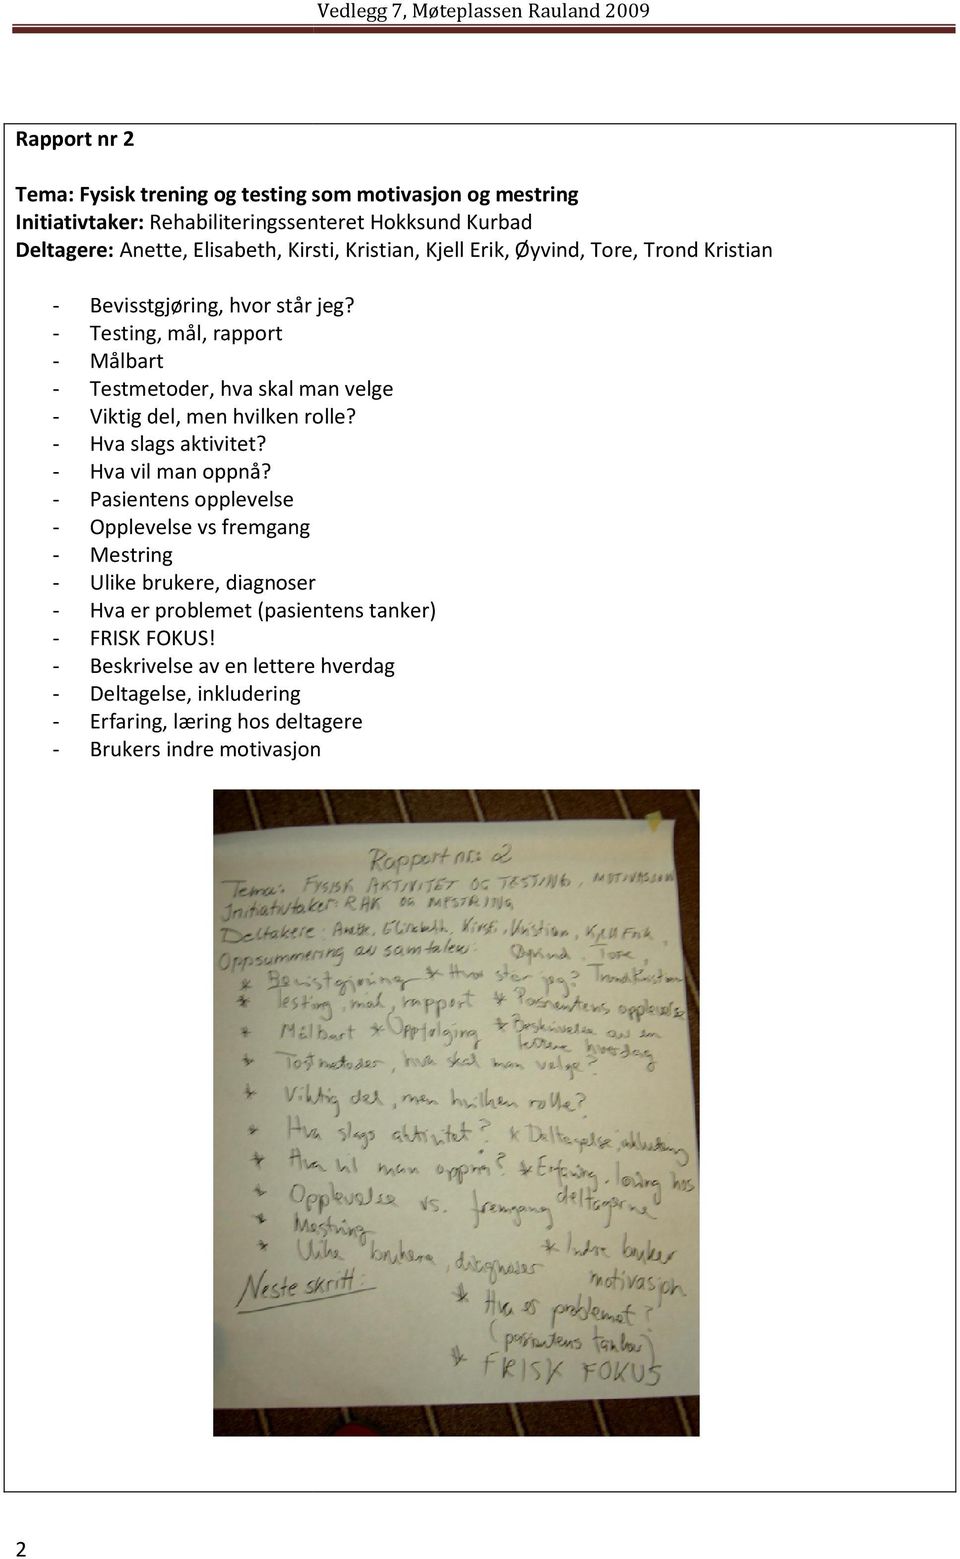 Vedlegg 7, Møteplassen Rauland 2009
Rapport nr 2
Tema: Fysisk trening og testing som motivasjon og mestring
Initiativtaker: Rehabiliteringssenteret Hokksund Kurbad
Deltagere: Anette, Elisabeth, Kirsti, Kristian, Kjell Erik, Øyvind, Tore, Trond Kristian
- Bevisstgjøring, hvor står jeg?
- Testing, mål, rapport
- Målbart
- Testmetoder, hva skal man velge
- Viktig del, men hvilken rolle?
- Hva slags aktivitet?
- Hva vil man oppnå?
- Pasientens opplevelse
- Opplevelse vs fremgang
- Mestring
- Ulike brukere, diagnoser
- Hva er problemet (pasientens tanker)
- FRISK FOKUS!
- Beskrivelse av en lettere hverdag
- Deltagelse, inkludering
- Erfaring, læring hos deltagere
- Brukers indre motivasjon
Rapport nr: 2
Tema: FYSISK AKTIVITET OG TESTING, MOTIVASJON
Initiativtaker: RAK OG MESTRING
Deltakere: Anette, Elisabeth, Kirsti, Kristian, Kjell Erik,
Oppsummering av samtalen: Øyvind, Tore,
* Bevistgjøring * Hvor står jeg? Trond Kristian
* Testing, mål, rapport * Pasientens opplevelse
* Målbart * Oppfølging * Beskrivelse av en
lettere hverdag
* Testmetoder, hva skal man velge?
* Viktig del, men hvilken rolle?
* Hva slags aktivitet? * Deltagelse, inkludering
* Hva vil man oppnå? * Erfaring, læring hos
* Opplevelse vs. fremgang deltagerne
* Mestring
* Ulike brukere, diagnoser * Indre bruker
motivasjon
Neste skritt:
* Hva er problemet?
(pasientens tanker)
* FRISK FOKUS
2